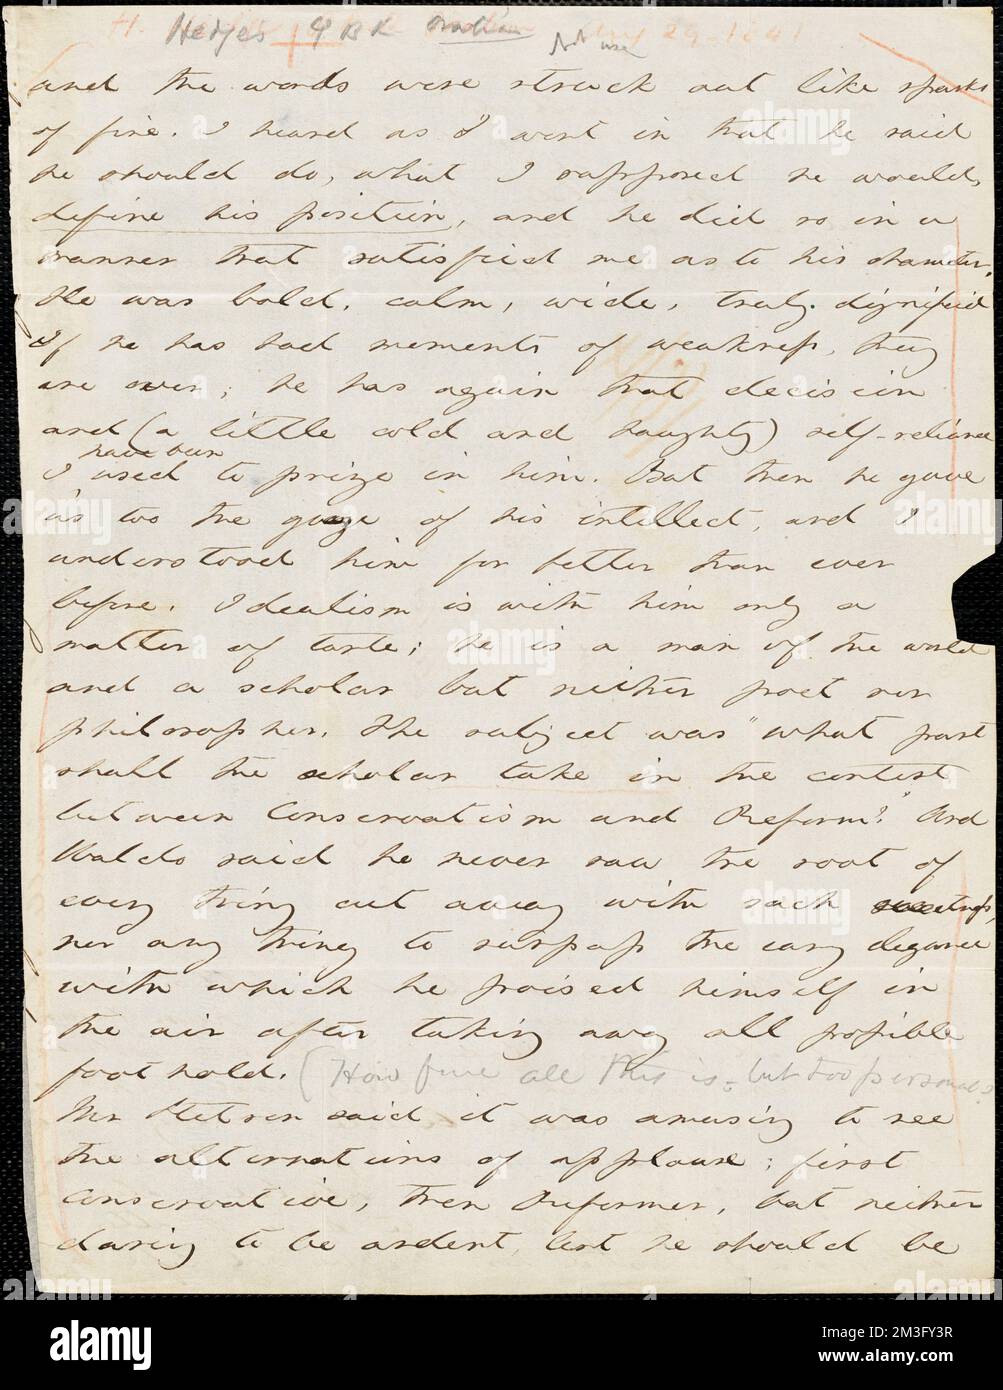 H. Hedge's ΦBK oration
Aug 29-1841
Not use
and the words were struck out like sparks
of fire. I heard as I went in that he said
he should do, what I supposed he would,
define his position, and he did so in a
manner that satisfied me as to his character.
He was bold, calm, wide, truly dignified
If he has had moments of weakness, they
are over; he has again that decision
and (a little cold and haughty) self-reliance
have been
I used to prize in him. But then he gave
us too the gauge of his intellect, and I
understood him far better than ever
before. Idealism is with him only a
matter of taste; he is a man of the world
and a scholar but neither poet nor
philosopher. The subject was "what part
shall the scholar take in the contest
between Conservatism and Reform?" And
Waldo said he never saw the root of
every thing cut away with such
nor any thing to surpass the easy elegance
with which he poised himself in
the air after taking away all possible
foot hold. (How fine all this is - but too personal?
Mr Stetson said it was amusing to see
the alternations of applause; first
Conservative, then Reformer, but neither
daring to be ardent, lest he should be
alamy
Image ID: 2M3FY3R
www.alamy.com